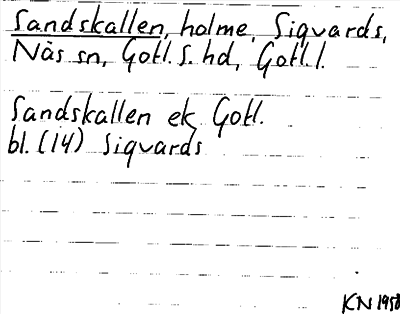 Sandskallen, holme, Sigvards,
Näs sn, Gotl. S. hd, Gotl. l.
Sandskallen ek Gotl.
bl. (14) Sigvards
KN 1958